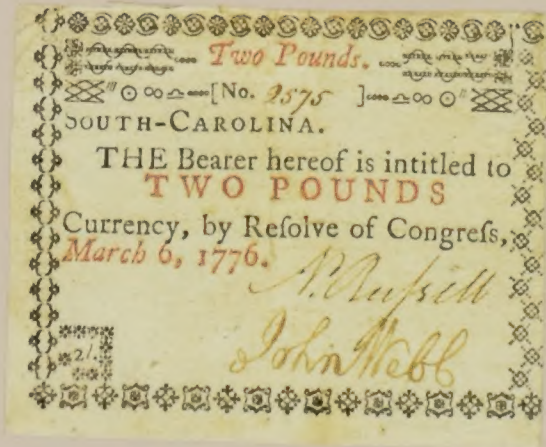 Two Pounds.
[No. 9575 ]
SOUTH-CAROLINA.
THE Bearer hereof is intitled to
TWO POUNDS
Currency, by Reſolve of Congreſs,
March 6, 1776.
N. Ruſsell
John Webb
2/.